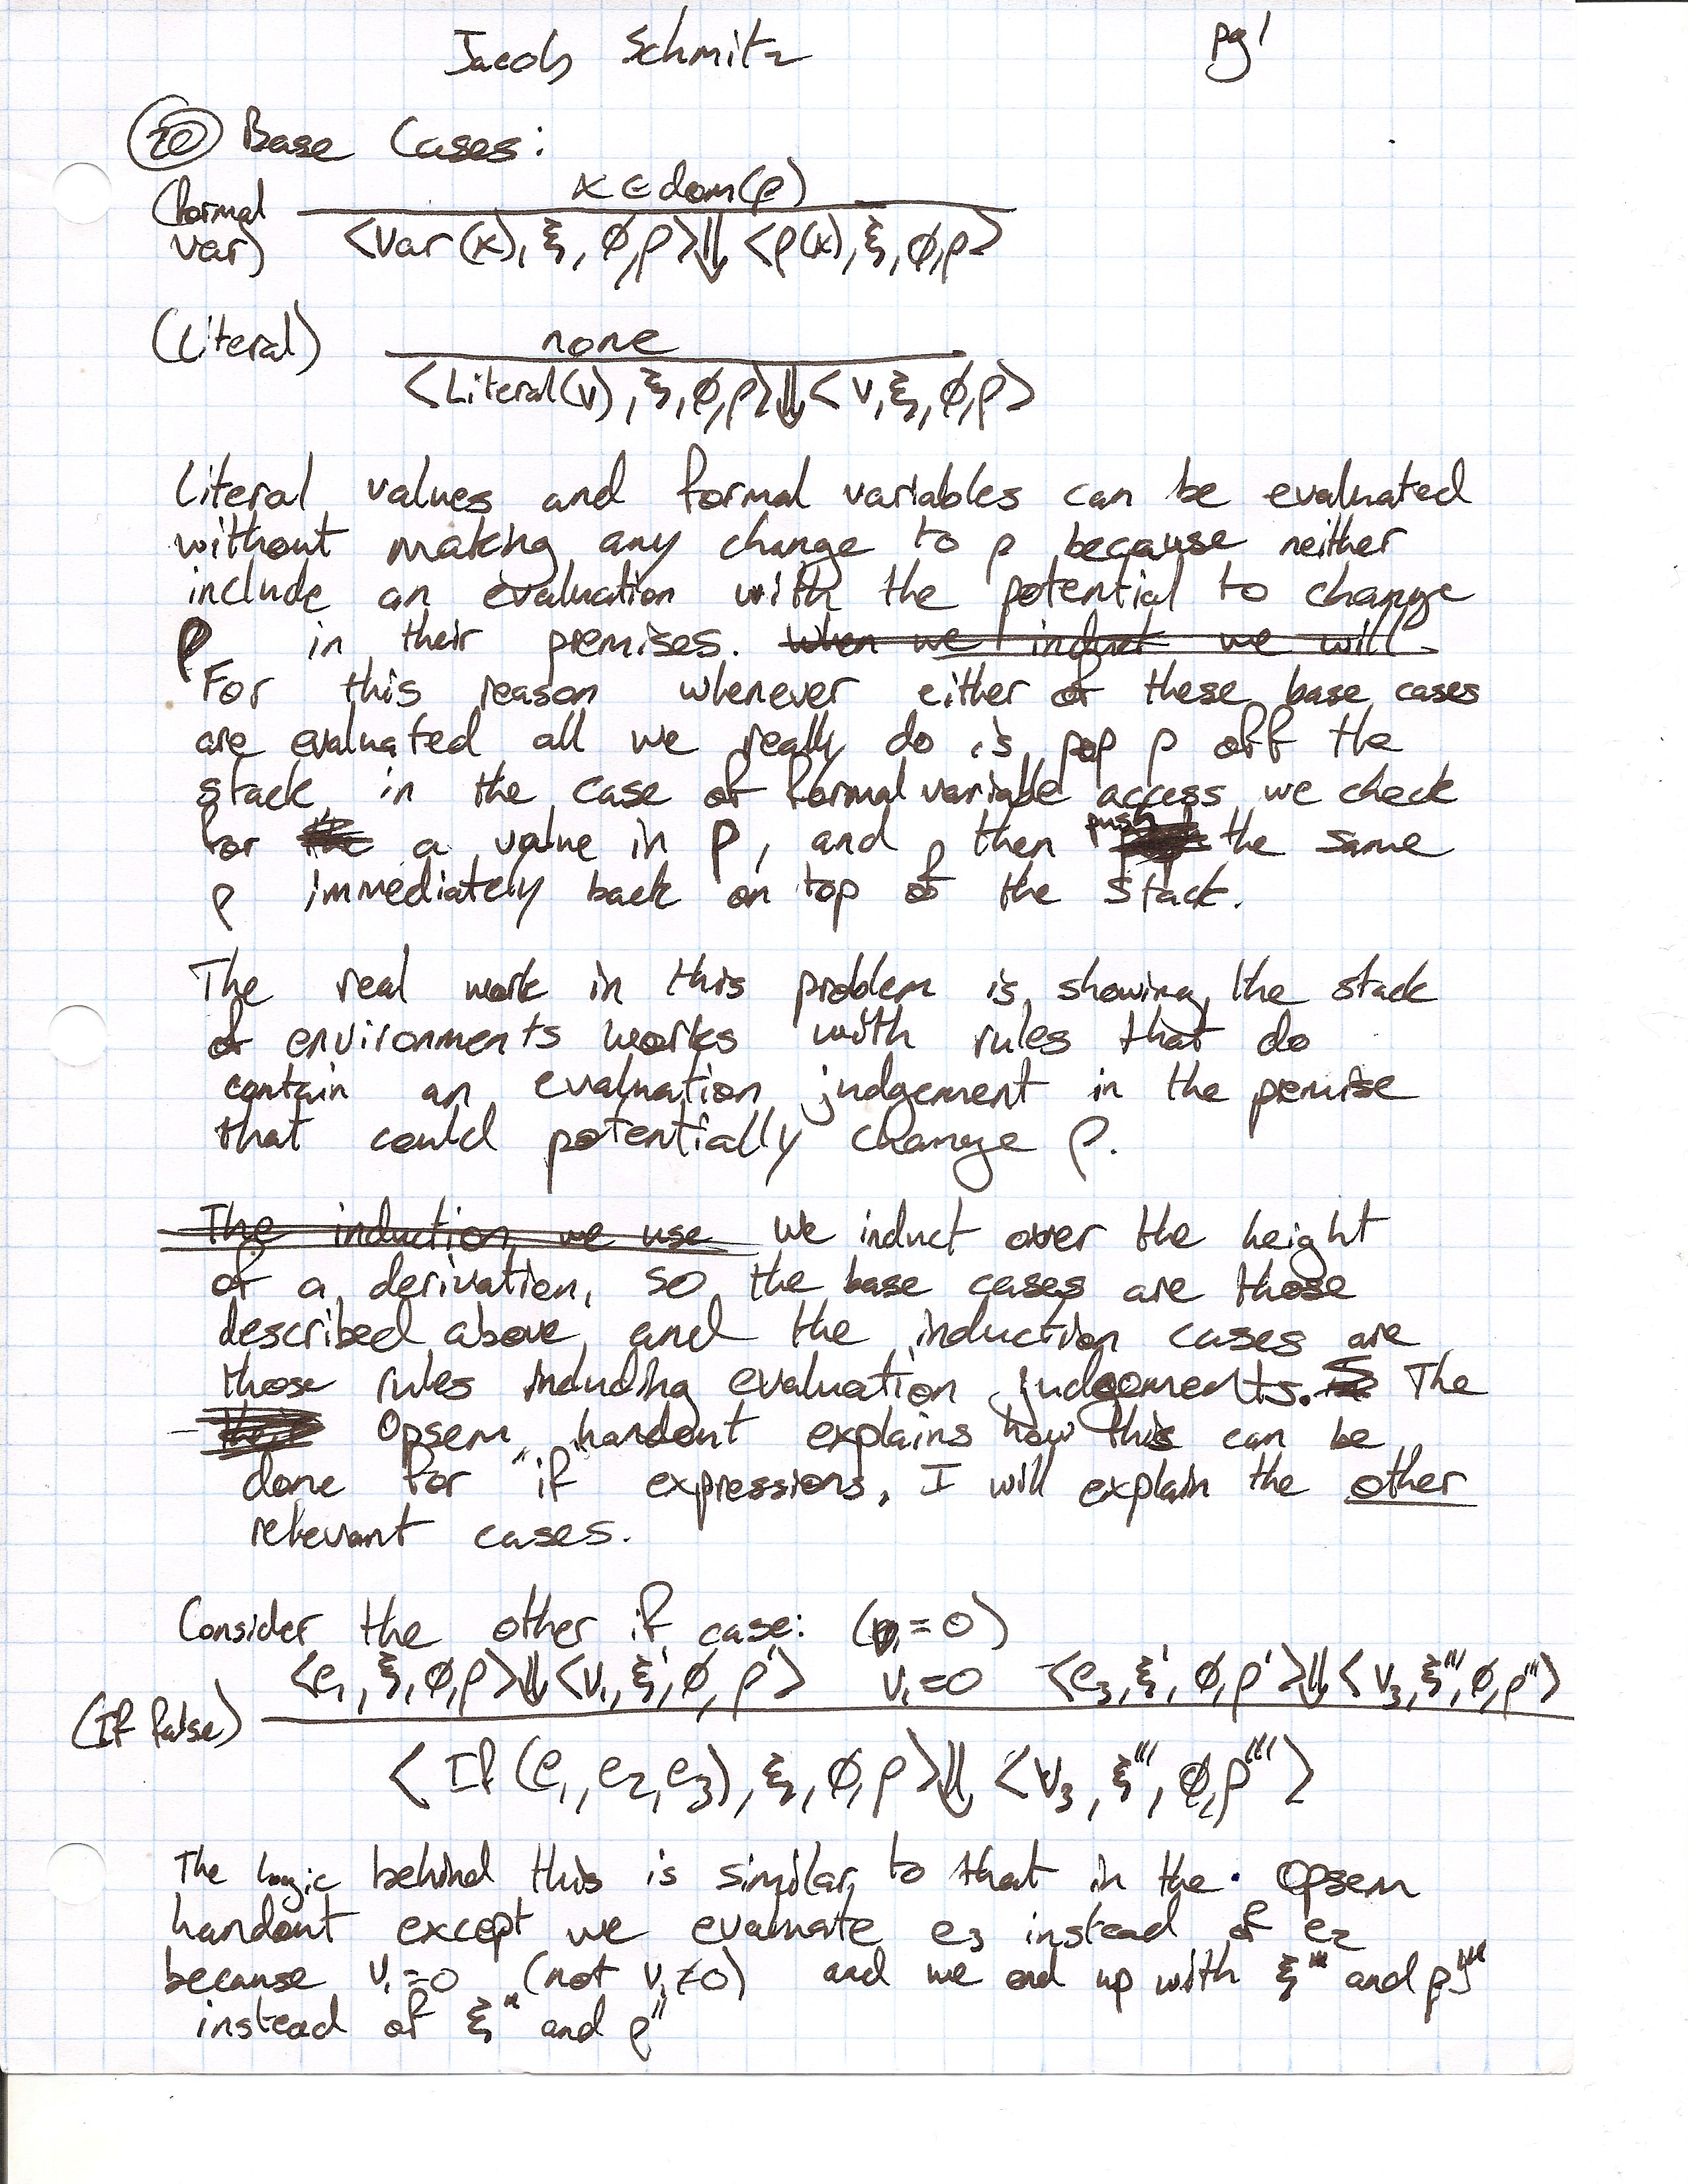 Jacob Schmitz pg 1
Base Cases:
(formal var) x ∈ dom(ρ)
<var(x), ξ, φ, ρ> ⇓ <ρ(x), ξ, φ, ρ>
(Literal) none
<Literal(v), ξ, φ, ρ> ⇓ <v, ξ, φ, ρ>
Literal values and formal variables can be evaluated
without making any change to ρ because neither
include an evaluation with the potential to change
ρ in their premises. When we induct we will
For this reason whenever either of these base cases
are evaluated all we really do is pop ρ off the
stack, in the case of formal variable access we check
for the a value in ρ, and then push the same
ρ immediately back on top of the stack.
The real work in this problem is showing the stack
of environments works with rules that do
contain an evaluation judgement in the premise
that could potentially change ρ.
The induction we use we induct over the height
of a derivation, so the base cases are those
described above, and the induction cases are
those rules including evaluation judgements. The
Opsem handout explains how this can be
done for "if" expressions, I will explain the other
relevant cases.
Consider the other if case: (v₁ = 0)
<e₁, ξ, φ, ρ> ⇓ <v₁, ξ', φ, ρ'> v₁=0 <e₃, ξ', φ, ρ'> ⇓ <v₃, ξ''', φ, ρ'''>
(If false)
<If(e₁, e₂, e₃), ξ, φ, ρ> ⇓ <v₃, ξ''', φ, ρ'''>
The logic behind this is similar to that in the Opsem
handout except we evaluate e₃ instead of e₂
because v₁=0 (not v₁≠0) and we end up with ξ''' and ρ'''
instead of ξ'' and ρ''